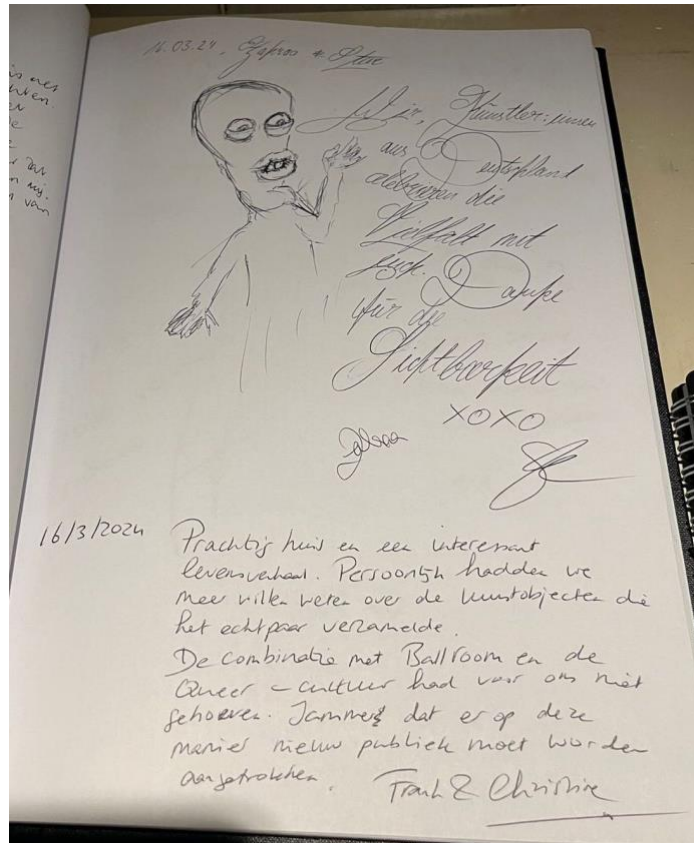 is met
16.03.24, &
Wir, Künstler:innen
aus Deutschland
zelebrieren die
Vielfalt mit
euch. Danke
für die
Sichtbarkeit
XOXO
16/3/2024
Prachtig huis en een interessant
levensverhaal. Persoonlijk hadden we
meer willen weten over de kunstobjecten die
het echtpaar verzamelde.
De combinatie met Ballroom en de
Queer-cultuur had voor ons niet
gehoeven. Jammer dat er op deze
manier nieuw publiek moet worden
aangetrokken.
Frank & Christine